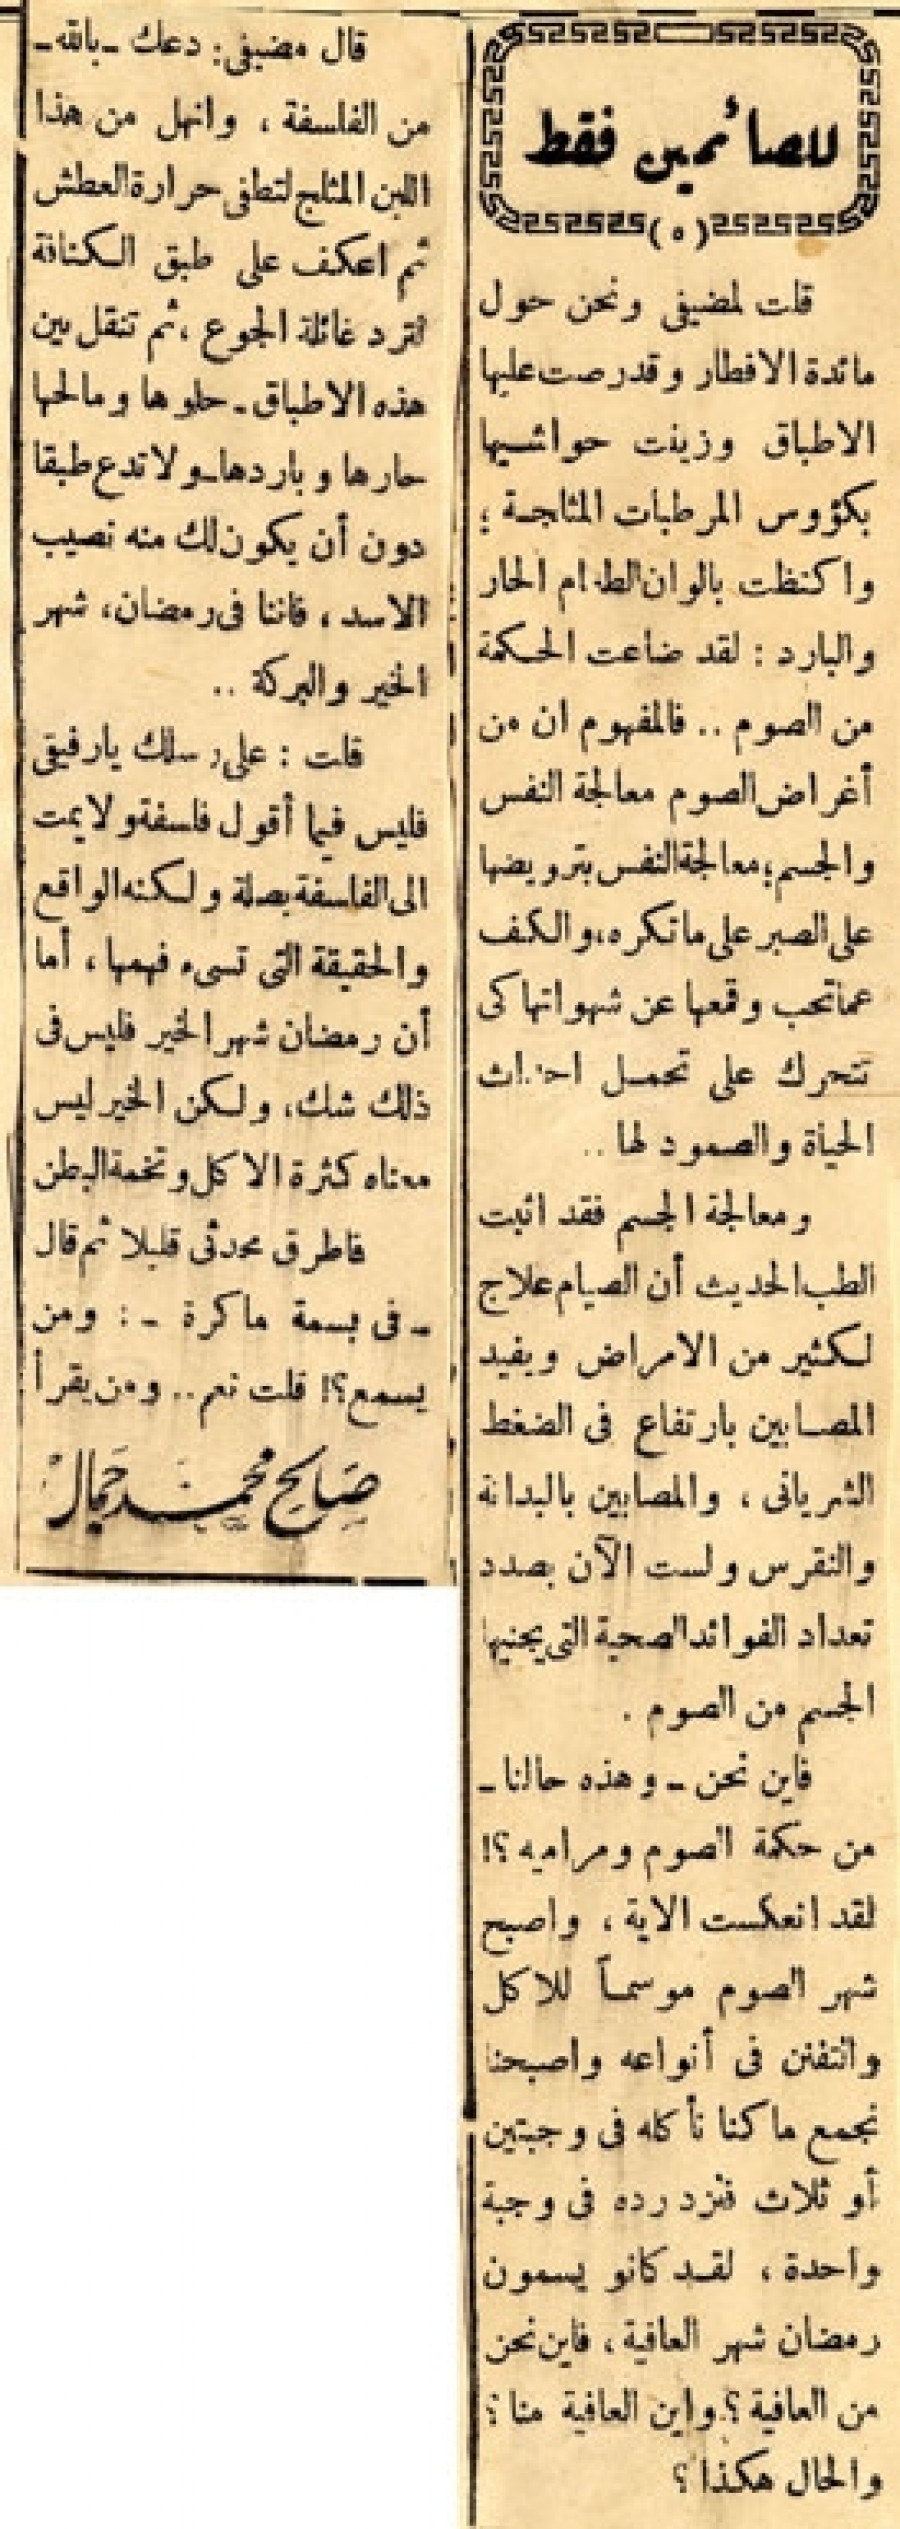 للصائمين فقط
(٥)
قلت لمضيفي ونحن حول
مائدة الافطار وقد رصت عليها
الاطباق وزينت حواشيها
بكؤوس المرطبات المثلجة ؛
واكتظت بالوان الطعام الحار
والبارد : لقد ضاعت الحكمة
من الصوم .. فالمفهوم ان من
أغراض الصوم معالجة النفس
والجسم؛ معالجة النفس بترويضها
على الصبر على ما تكره، والكف
عما تحب وقمعها عن شهواتها كى
تتحرك على تحمل احداث
الحياة والصمود لها ..
ومعالجة الجسم فقد اثبت
الطب الحديث أن الصيام علاج
لكثير من الامراض ويفيد
المصابين بارتفاع فى الضغط
الشريانى ، والمصابين بالبدانة
والنقرس ولست الآن بصدد
تعداد الفوائد الصحية التى يجنيها
الجسم من الصوم .
فاين نحن ـ وهذه حالنا ـ
من حكمة الصوم ومراميه ؟!
لقد انعكست الاية ، واصبح
شهر الصوم موسماً للاكل
والتفنن فى أنواعه واصبحنا
نجمع ما كنا نأكله فى وجبتين
أو ثلاث فنزدرده فى وجبة
واحدة ، لقد كانو يسمون
رمضان شهر العافية ، فاين نحن
من العافية ؟ واين العافية منا ؟
والحال هكذا ؟
قال مضيفي: دعك ـ بالله ـ
من الفلسفة ، وانهل من هذا
اللبن المثلج لتطفى حرارة العطش
ثم اعكف على طبق الكنافة
لترد غائلة الجوع ، ثم تنقل بين
هذه الاطباق ـ حلوها ومالحها
حارها وباردها ـ ولا تدع طبقا
دون أن يكون لك منه نصيب
الاسد ، فاننا فى رمضان، شهر
الخير والبركة ..
قلت : على رسلك يا رفيقى
فليس فيما أقول فلسفة ولا يمت
الى الفلسفة بصلة ولكنه الواقع
والحقيقة التى تسىء فهمها ، أما
أن رمضان شهر الخير فليس فى
ذلك شك، ولكن الخير ليس
معناه كثرة الاكل وتخمة البطن
فاطرق محدثى قليلا ثم قال
ـ فى بسمة ماكرة ـ : ومن
يسمع؟! قلت نعم .. ومن يقرأ
صالح محمد جمال